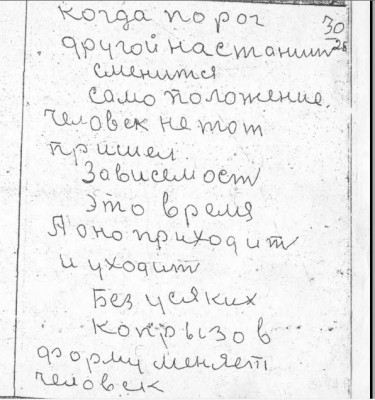 когда порог
30
28
другой настанит
сменится
само положение.
Человек не тот
пришел.
Зависемост
Это время
А оно приходит
и уходит
Без усяких
копрызов
форму меняет
человек